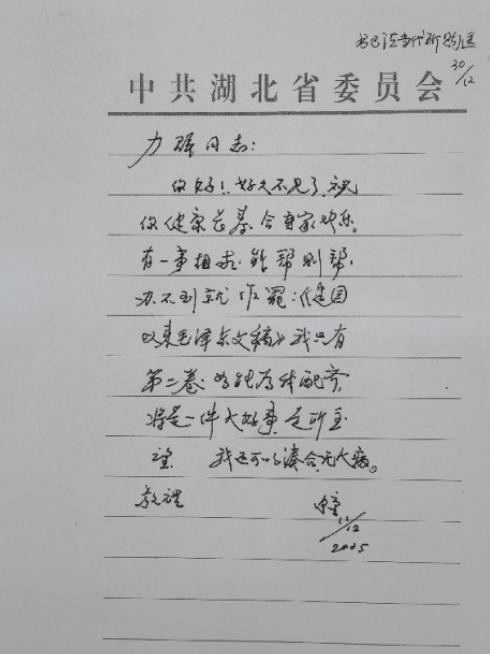 30/12
中共湖北省委员会
力強同志：
你好！好久不见了，祝
你健康长寿合家欢乐。
有一事相求，能帮则帮，
办不到就作罢：《建国
以来毛泽东文稿》我只有
第二卷，如能为我配齐
将是一件大好事，是所至
望 我还可以凑合，无大病。
敬礼
11/12
2005